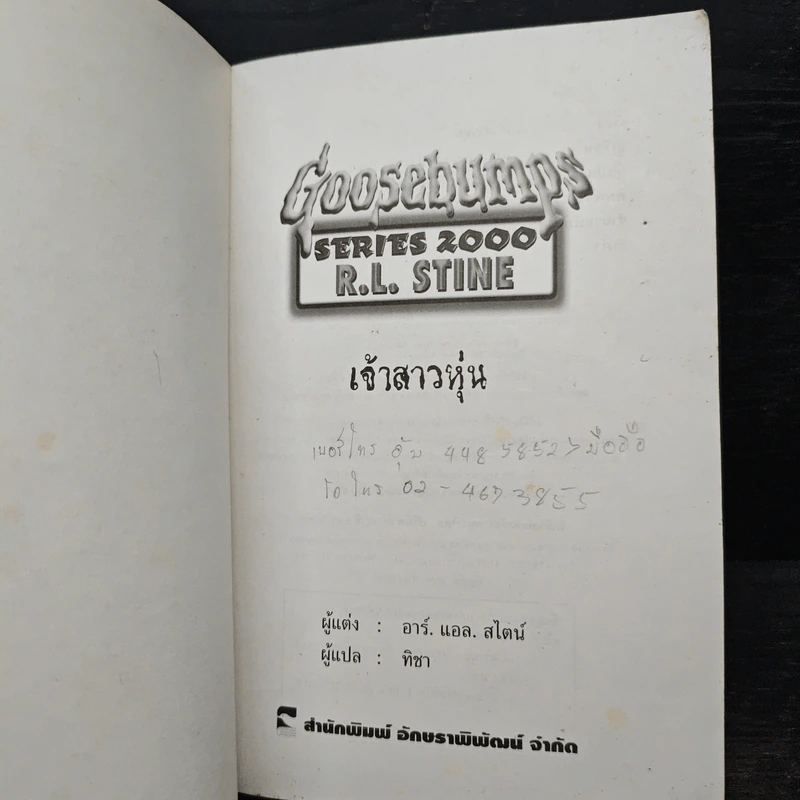 Goosebumps
SERIES 2000
R.L. STINE
เจ้าสาวหุ่น
เบอร์โทร อุ้ม 448 5852 > มือถือ
โทร 02 - 467 3855
ผู้แต่ง : อาร์. แอล. สไตน์
ผู้แปล : ทิชา
สำนักพิมพ์ อักษราพิพัฒน์ จำกัด